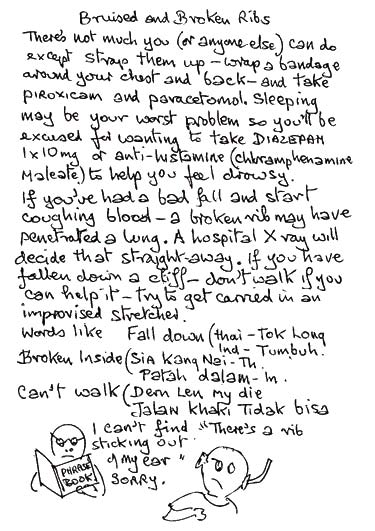 Bruised and Broken Ribs
There's not much you (or anyone else) can do
except straps them up – wrap a bandage
around your chest and back – and take
piroxicam and paracetomol. Sleeping
may be your worst problem so you'll be
excused for wanting to take DIAZEPAM
1x10mg or anti-histamine (chloramphenamine
Maleate) to help you feel drowsy.
If you've had a bad fall and start
coughing blood – a broken rib may have
penetrated a lung. A hospital X ray will
decide that straight-away. If you have
fallen down a cliff – don't walk if you
can help it – try to get carried in an
improvised stretcher.
Words like Fall down (thai - Tok Long
Ind - Tumbuh.
Broken Inside (Sia Kang Nai - Th.
Patah dalam - In.
Can't walk (Dern Len My die
Jalan khaki Tidak bisa
I can't find "There's a rib
sticking out
of my ear"
SORRY.
PHRASE
BOOK